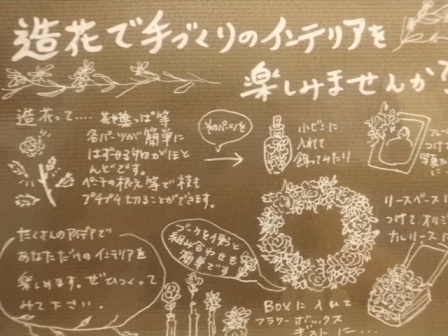 造花で手づくりのインテリアを
楽しみませんか?
造花って‥‥ 花や葉っぱ等
各パーツが簡単に
はずせる物がほと
んどです。
ペンチの根元等で枝も
プチプチ切ることができます。
そのパーツを
小ビンに
入れて
飾ってみたり
リースベースに
つけて
ナルリースに
ブーケを作ると
組み合わせも
簡単です
たくさんのアイデアで
あなただけのインテリアを
楽しめます。ぜひつくって
みて下さい。
BOXに入れて
フラワーボックス